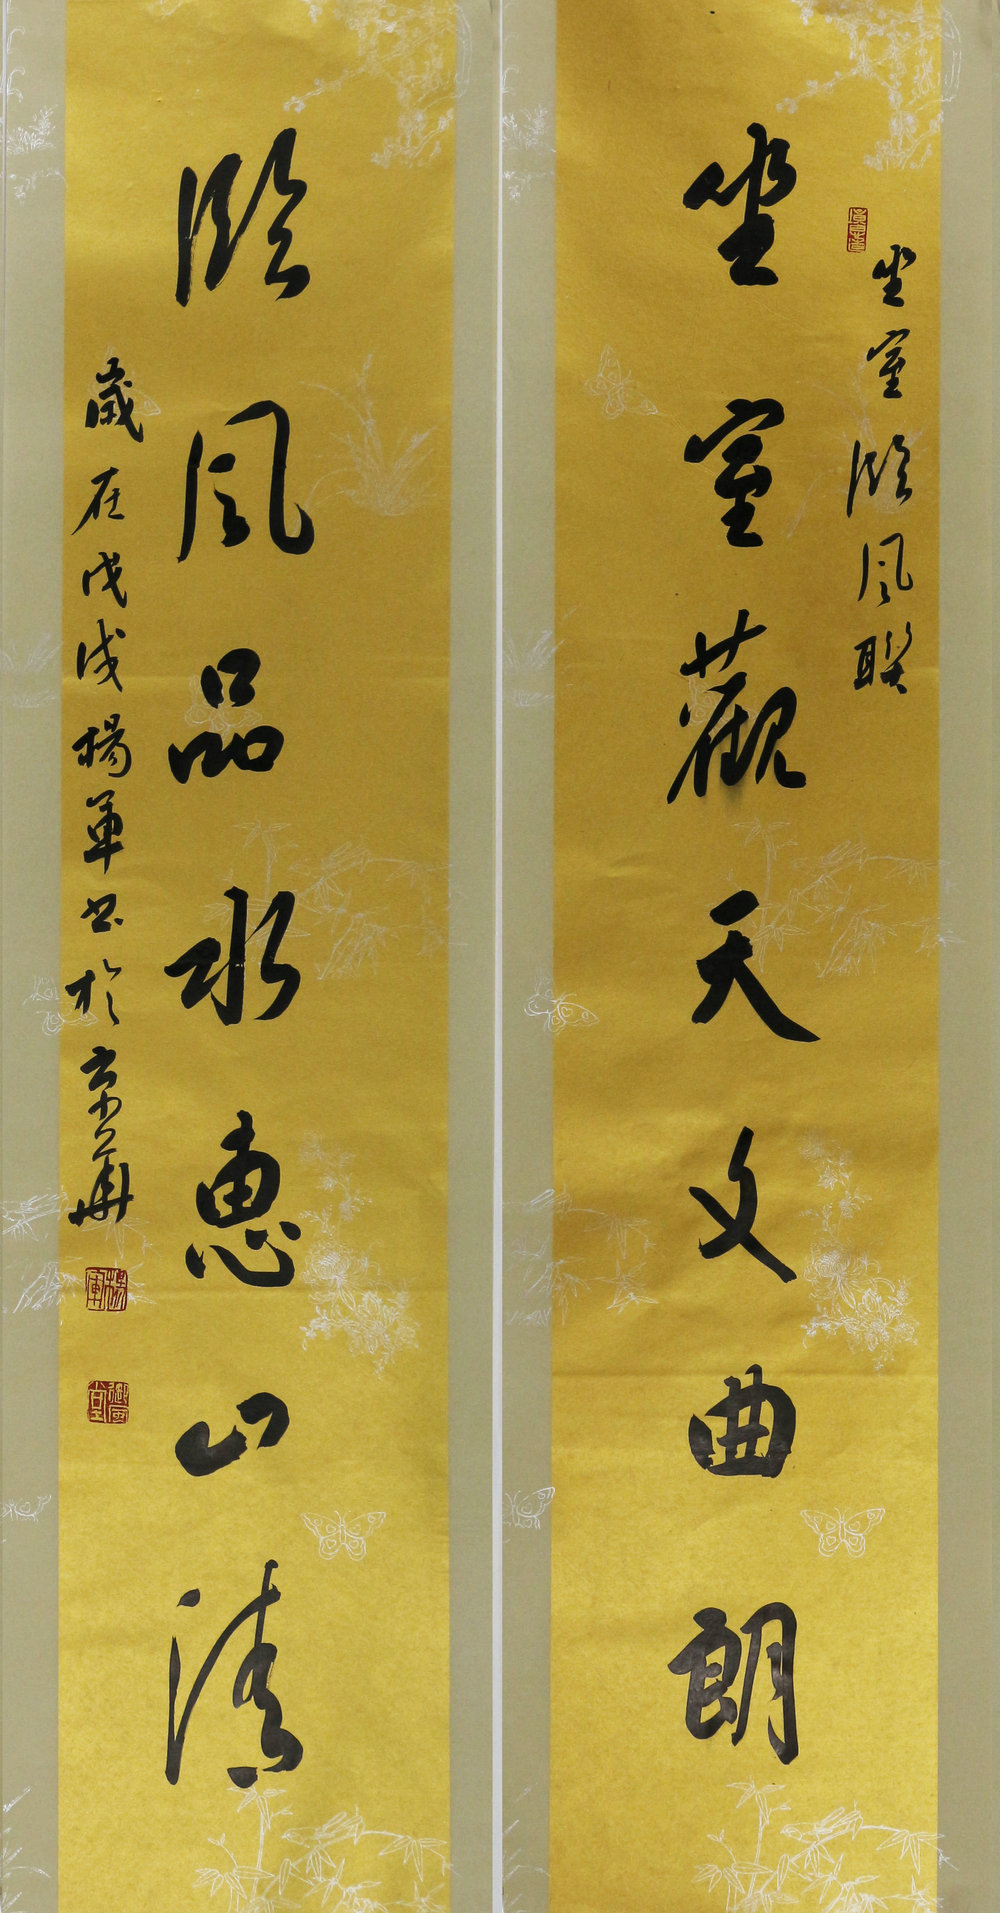 坐室臨風聯
坐室觀天文曲朗
臨風品水惠山清
歲在戊戌楊軍書於京華
楊軍